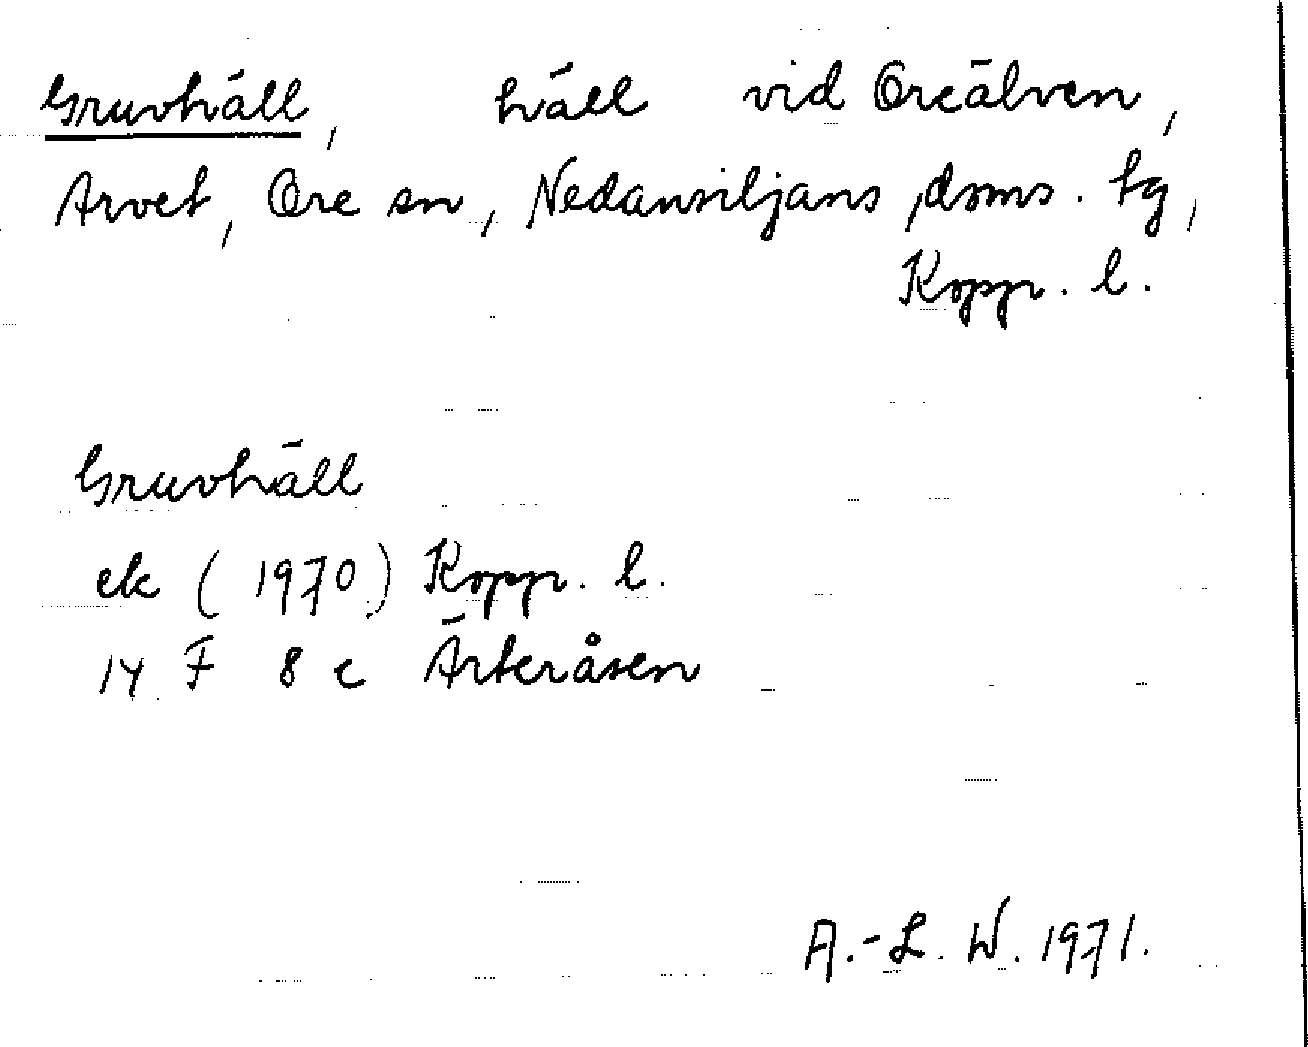 Gruvhäll, häll vid Oreälven,
Arvet, Ore sn, Nedansiljans doms. tg,
Kopp. l.
Gruvhäll
ek (1970) Kopp. l.
14 F 8 c Ärteråsen
A.-L. W. 1971.